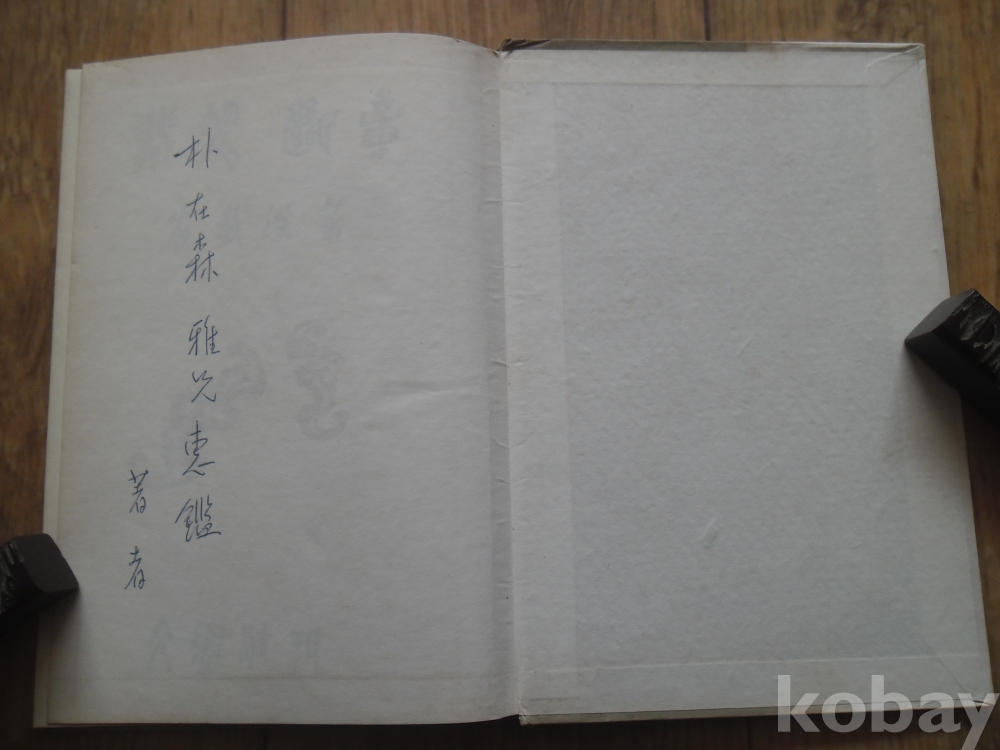 朴在森 雅兄惠鑑
著者
kobay